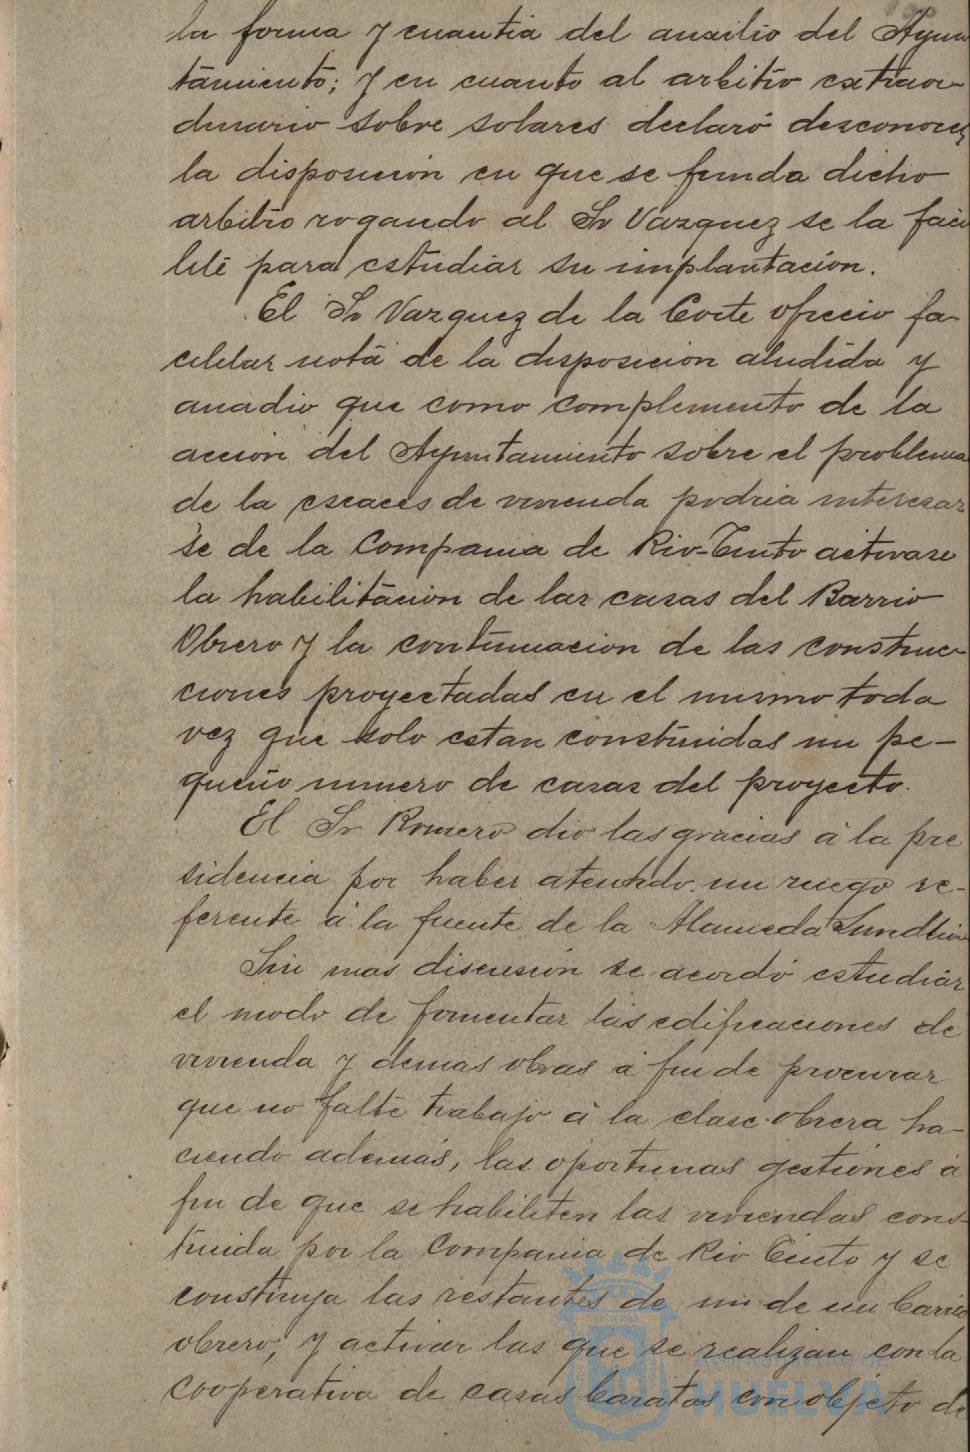 la forma y cuantia del auxilio del Ayun
tamiento; y en cuanto al arbitrio extraor-
dinario sobre solares declaró desconocer
la disposición en que se funda dicho
arbitrio rogando al Sr Vazquez se la faci
lite para estudiar su implantación.
El Sr Vazquez de la Corte ofrecio fa-
cilitar nota de la disposicion aludida y
anadio que como complemento de la
accion del Ayuntamiento sobre el problema
de la escaces de vivienda podria interesar
se de la Compania de Rio-Tinto activase
la habilitacion de las casas del Barrio
Obrero y la continuacion de las construc-
ciones proyectadas en el mismo toda
vez que solo estan construidas un pe-
queño numero de casas del proyecto.
El Sr Romero dio las gracias á la pre
sidencia por haber atendido un ruego re-
ferente á la fuente de la Alameda Sundhein
Sin mas discusión se acordó estudiar
el modo de fomentar las edificaciones de
vivienda y demas obras á fin de procurar
que no falte trabajo á la clase obrera ha-
ciendo además, las oportunas gestiones á
fin de que se habiliten las viviendas cons-
truida por la Compania de Rio Tinto y se
construya las restantes de de un barrio
obrero, y activar las que se realizan con la
cooperativa de casas baratas con objeto de
AYUNTAMIENTO DE
HUELVA